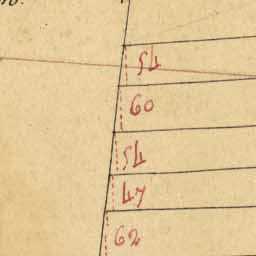 54
60
54
47
62